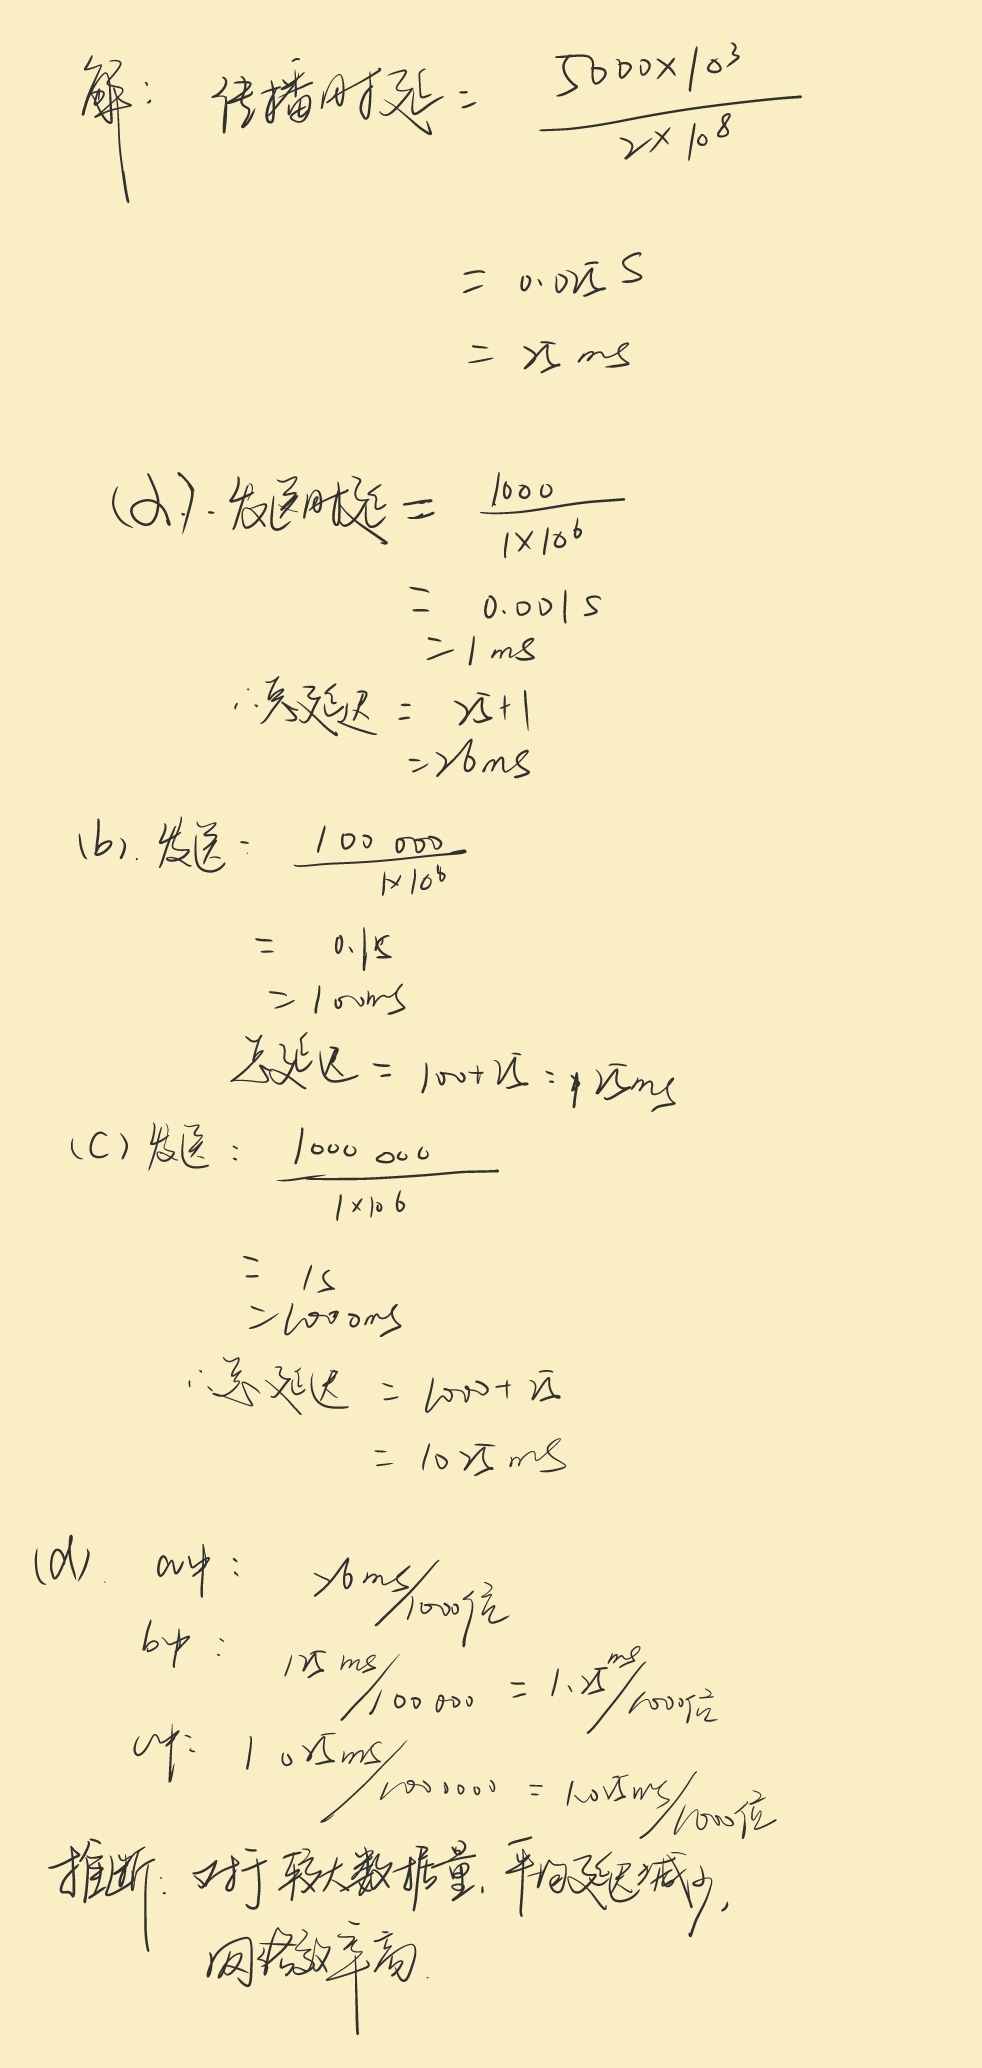 解: 传播时延 = 5000×10³
2×10⁸
= 0.025 S
= 25 ms
(a). 发送时延 = 1000
1×10⁶
= 0.001 s
= 1 ms
∴总延迟 = 25+1
= 26 ms
(b). 发送: 100 000
1×10⁶
= 0.1s
= 100ms
总延迟 = 100+25 = 125ms
(C) 发送: 1000 000
1×10⁶
= 1s
= 1000ms
∴总延迟 = 1000+25
= 1025 ms
(d). a中: 26ms/1000位
b中: 125 ms/100 000 = 1.25ms/1000位
c中: 1025ms/1000000 = 1.025ms/1000位
推断: 对于较大数据量, 平均延迟减少,
网络效率高.